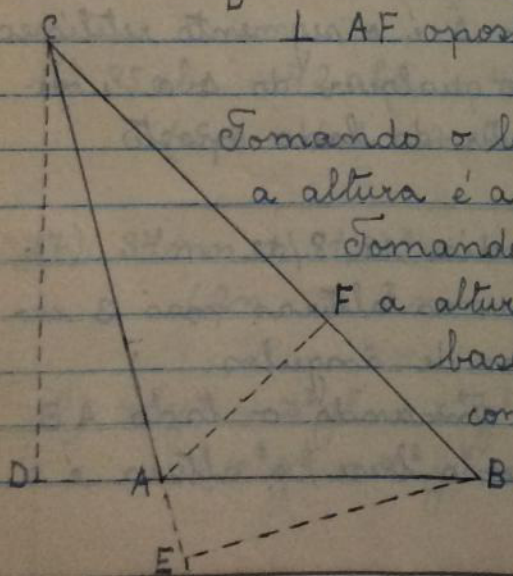 C
⊥ AF opos
Tomando o l
a altura é a
Tomand
F a altur
bas
con
D A B
E